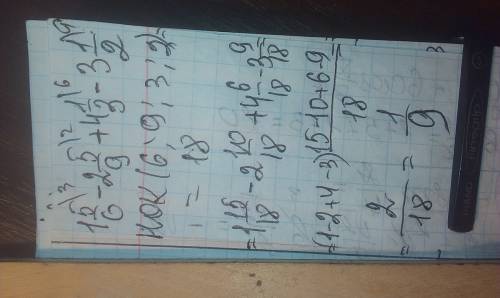 1 5/6 \3 - 2 5/9 \2 + 4 1/3 \6 - 3 1/2 \9
НОК (6; 9; 3; 2) =
= 18
= 1 15/18 - 2 10/18 + 4 6/18 - 3 9/18 =
= (1-2+4-3) 15-10+6-9/18 =
= 2/18 = 1/9